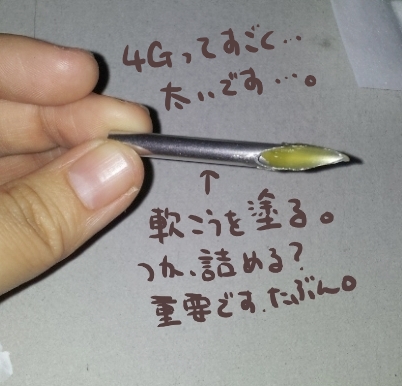 4Gってすごく…
太いです…。
↑
軟こうを塗る。
つか、詰める?
重要です.たぶん。